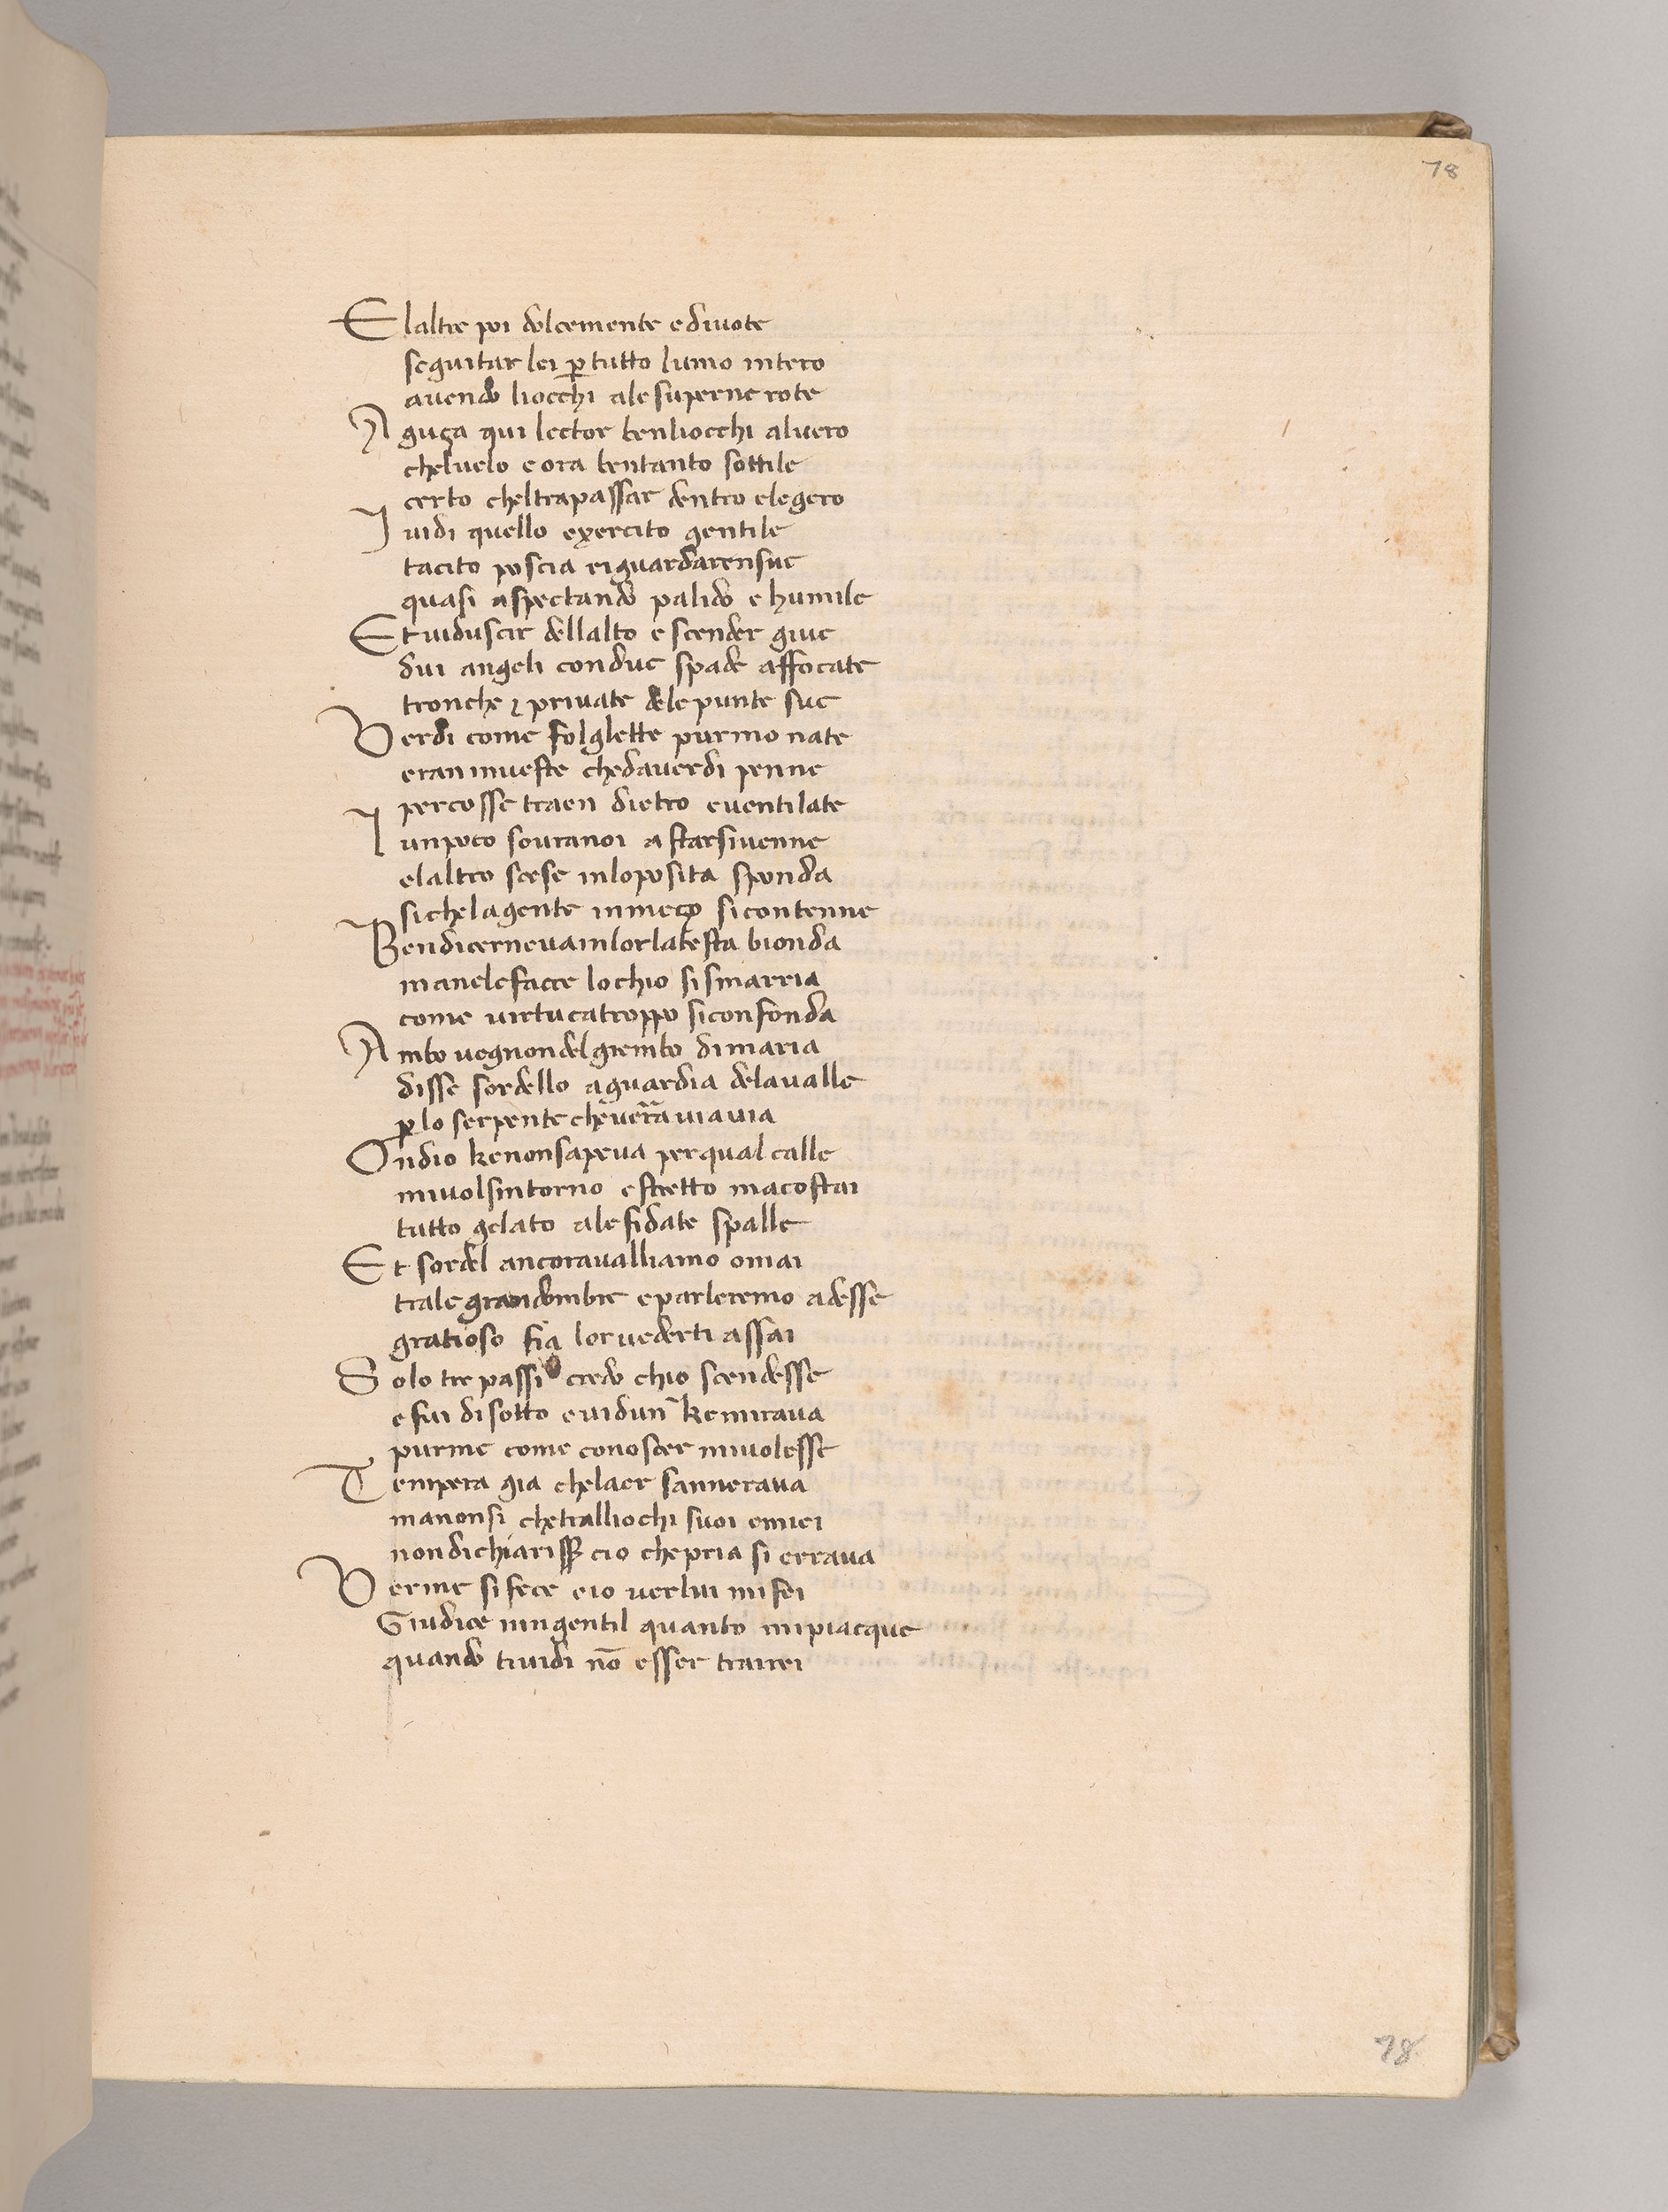 78
Elaltre poi dolcemente edivote
seguitar lei ꝑ tutto linno intero
avendo liocchi ale superne rote
Aguça qui lector ben liocchi alvero
chelvelo e ora bentanto sottile
certo cheltrapassar dentro elegero
I vidi quello exercito gentile
tacito poscia riguardarensue
quasi aspectando palido e humile
Et viduscir dellalto e scender giue
dui angeli condue spade affocate
tronche ⁊ private dele punte sue
Verdi come folglette purmo nate
eran investe chedaverdi penne
percosse traen dietro eventilate
I unpoco sovranoi astarsivenne
elaltro scese inloposita sponda
sichelagente inmeço sicontenne
Bendicernevainlorlatesta bionda
manelefacce lochio sismarria
come virtucatroppo siconfonda
Ambo vegnondelgrembo dimaria
disse sordello aguardia delavalle
ꝑlo serpente cheverra viavia
Ondio kenonsapeva perqual calle
mivolsintorno estretto macostai
tutto gelato alefidate spalle
Et sordel ancoravalliamo omai
tralegrandombre eparleremo adesse
gratioso fia lorvederti assai
Solo tre passi credo chio scendesse
efui disotto evidun kemirava
purme come conoscer mivolesse
Tempera gia chelaer sannerava
manonsi chetralliochi suoi emiei
nondichiarisse cio chepria si errava
Verme sifece eio verlui mifei
Giudice ningentil quanto mipiacque
quando tividi nō esser trairei
78